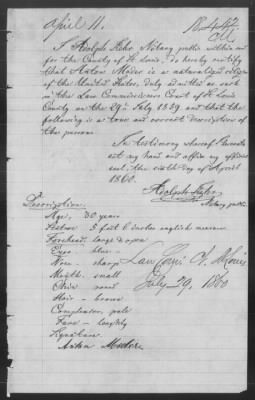 April 11.
I Adolph Kehr Notary public within and
for the County of St. Louis, do hereby certify
that Anton Mader is a naturalized citizen
of the United States, duly admitted as such
in the Law Commissioners Court of St. Louis
County on the 29th July 1859 and that the
following is a true and correct description of
the person
In testimony whereof I hereunto
set my hand and affix my official
seal the sixth day of April
1860.
Adolph Kehr
Notary public
Description.
Age, 30 years
Stature 5 feet 6 inches english measure
Forehead large & open
Eyes - blue
Nose - sharp
Mouth small
Chin round
Hair - brown
Complexion, pale
Face - longish
Signature
Anton Mader
Law Com. Ct. St Louis
July 29, 1860